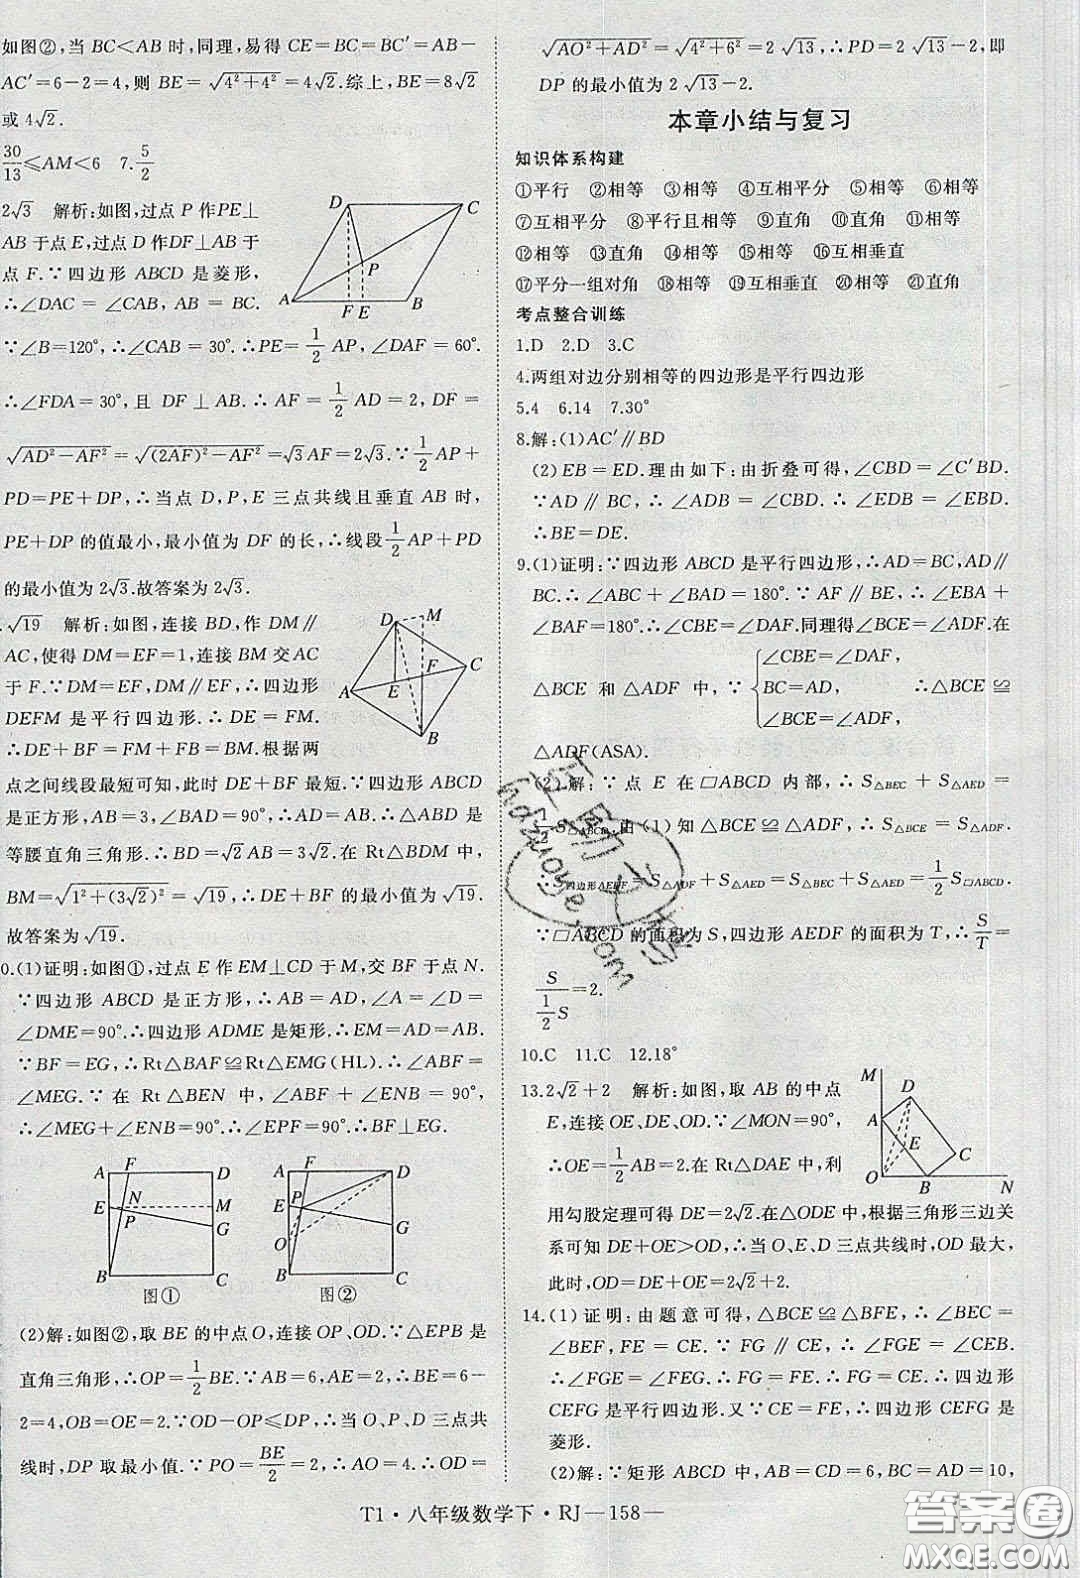 如图②，当 BC＜AB 时，同理，易得 CE＝BC＝BC′＝AB－
AC′＝6－2＝4，则 BE＝√(4²＋4²)＝4√2．综上，BE＝8√2
或 4√2．
30/13≤AM＜6　7.5/2
2√3　解析：如图，过点 P 作PE⊥
AB 于点 E，过点 D 作DF⊥AB 于
点 F．∵四边形 ABCD 是菱形，
∴∠DAC＝∠CAB，AB＝BC．
∵∠B＝120°，∴∠CAB＝30°．∴PE＝1/2 AP，∠DAF＝60°．
∴∠FDA＝30°，且 DF⊥AB．∴AF＝1/2 AD＝2，DF＝
√(AD²－AF²)＝√((2AF)²－AF²)＝√3 AF＝2√3．∵1/2 AP＋
PD＝PE＋DP，∴当点 D，P，E 三点共线且垂直 AB 时，
PE＋DP 的值最小，最小值为 DF 的长，∴线段1/2 AP＋PD
的最小值为 2√3．故答案为 2√3．
．√19　解析：如图，连接 BD，作 DM∥
AC，使得 DM＝EF＝1，连接 BM 交AC
于 F．∵DM＝EF，DM∥EF，∴四边形
DEFM 是平行四边形．∴DE＝FM．
∴DE＋BF＝FM＋FB＝BM．根据两
点之间线段最短可知，此时 DE＋BF 最短．∵四边形 ABCD
是正方形，AB＝3，∠BAD＝90°，∴AD＝AB．∴△ABD 是
等腰直角三角形．∴BD＝√2 AB＝3√2．在 Rt△BDM 中，
BM＝√(1²＋(3√2)²)＝√19，∴DE＋BF 的最小值为√19．
故答案为√19．
0.(1)证明：如图①，过点 E 作EM⊥CD 于 M，交 BF 于点 N．
∵四边形 ABCD 是正方形，∴AB＝AD，∠A＝∠D＝
∠DME＝90°．∴四边形 ADME 是矩形．∴EM＝AD＝AB．
∵BF＝EG，∴Rt△BAF≌Rt△EMG(HL)．∴∠ABF＝
∠MEG．∵在 Rt△BEN 中，∠ABF＋∠ENB＝90°，
∴∠MEG＋∠ENB＝90°．∴∠EPF＝90°．∴BF⊥EG．
图①　图②
(2)解：如图②，取 BE 的中点 O，连接 OP、OD．∵△EPB 是
直角三角形，∴OP＝1/2 BE．∵AB＝6，AE＝2，∴BE＝6－
2＝4，OB＝OE＝2．∵OD－OP≤DP，∴当 O、P、D 三点共
线时，DP 取最小值．∵PO＝BE/2＝2，∴AO＝4．∴OD＝
√(AO²＋AD²)＝√(4²＋6²)＝2√13，∴PD＝2√13－2，即
DP 的最小值为 2√13－2．
本章小结与复习
知识体系构建
①平行　②相等　③相等　④互相平分　⑤相等　⑥相等
⑦互相平分　⑧平行且相等　⑨直角　⑩互相平分　⑪直角
⑫相等　⑬直角　⑭相等　⑮相等　⑯互相垂直
⑰平分一组对角　⑱相等　⑲互相垂直　⑳直角　㉑直角
考点整合训练
1.D　2.D　3.C
4.两组对边分别相等的四边形是平行四边形
5.4　6.14　7.30°
8.解：(1)AC′∥BD
(2)EB＝ED．理由如下：由折叠可得，∠CBD＝∠C′BD．
∵AD∥BC，∴∠ADB＝∠CBD．∴∠EDB＝∠EBD．
∴BE＝DE．
9.(1)证明：∵四边形 ABCD 是平行四边形，∴AD＝BC，AD∥
BC．∴∠ABC＋∠BAD＝180°．∵AF∥BE，∴∠EBA＋
∠BAF＝180°．∴∠CBE＝∠DAF．同理得∠BCE＝∠ADF．在
△BCE 和△ADF 中，∵{∠CBE＝∠DAF，
BC＝AD，
∠BCE＝∠ADF，
∴△BCE≌
△ADF(ASA)．
(2)解：∵点 E 在□ABCD 内部，∴S△BEC＋S△AED＝
1/2 S□ABCD．由(1)知△BCE≌△ADF，∴S△BCE＝S△ADF．
∴S四边形AEDF＝S△ADF＋S△AED＝S△BEC＋S△AED＝1/2 S□ABCD．
∵□ABCD 的面积为 S，四边形 AEDF 的面积为 T，∴S/T＝
S/(1/2 S)＝2．
10.C　11.C　12.18°
13.2√2＋2　解析：如图，取 AB 的中点
E，连接 OE、DE、OD．∵∠MON＝90°，
∴OE＝1/2 AB＝2．在 Rt△DAE 中，利
用勾股定理可得 DE＝2√2．在△ODE 中，根据三角形三边关
系可知 DE＋OE＞OD，∴当 O、E、D 三点共线时，OD 最大，
此时，OD＝DE＋OE＝2√2＋2．
14.(1)证明：由题意可得，△BCE≌△BFE，∴∠BEC＝
∠BEF，FE＝CE．∵FG∥CE，∴∠FGE＝∠CEB．
∴∠FGE＝∠FEG．∴FG＝FE．∴FG＝CE．∴四边形
CEFG 是平行四边形．又∵CE＝FE，∴四边形 CEFG 是
菱形．
(2)解：∵矩形 ABCD 中，AB＝6，AD＝10，
T1·八年级数学下·RJ—158—
答案圈
MXQE.COM